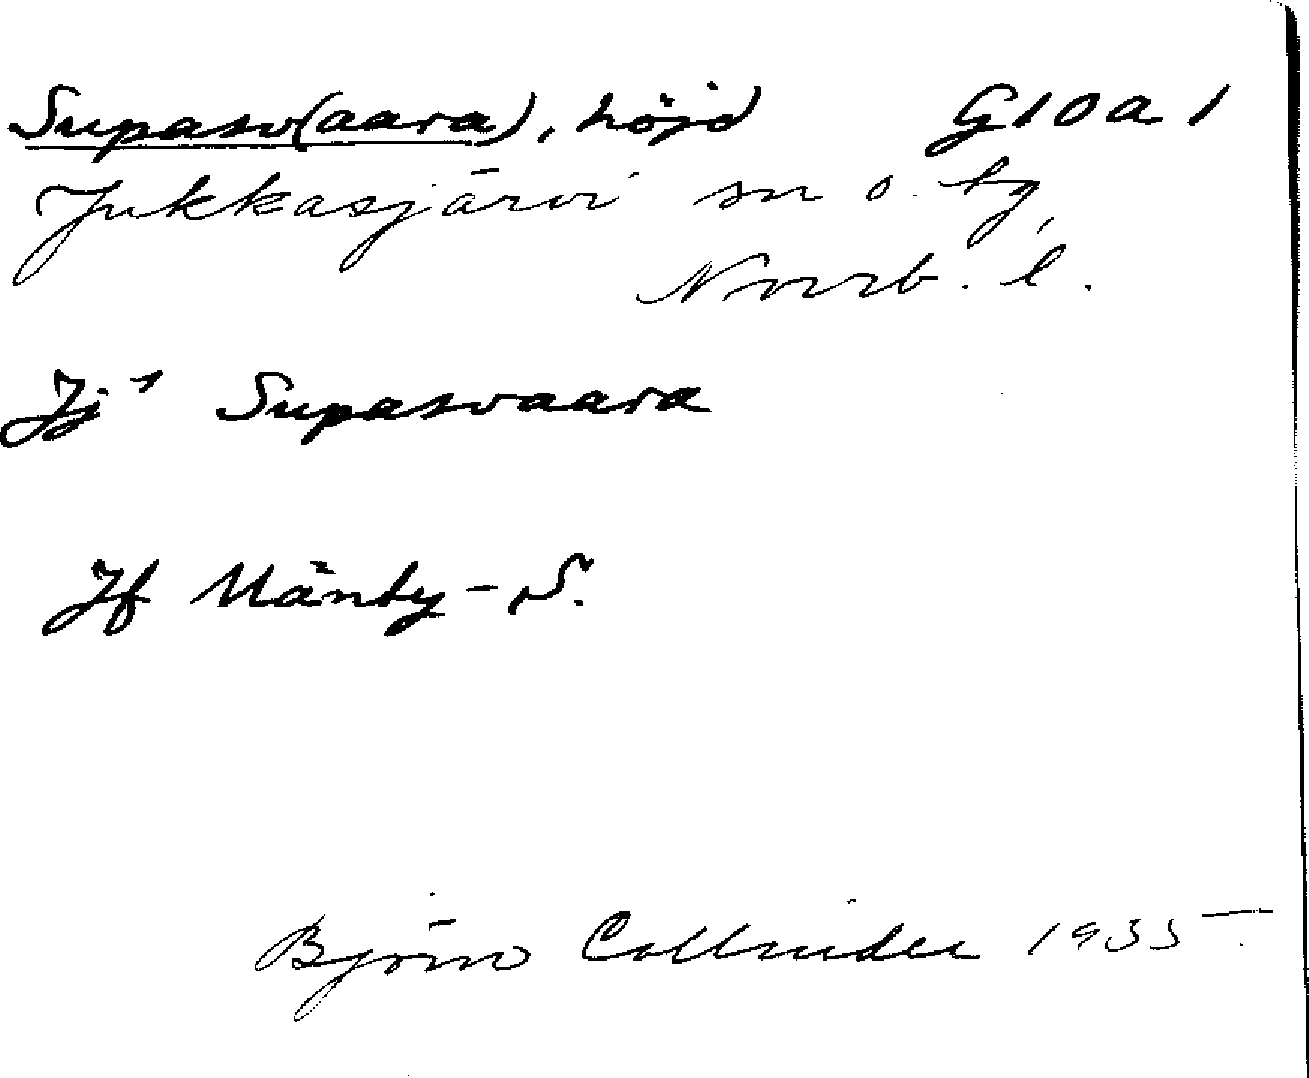 Supasv(aara), höjd G10a1
Jukkasjärvi sn o. by,
Norrb. l.
Jj¹ Supasvaara
Jf Mänty-S.
Björn Collinder 1935.